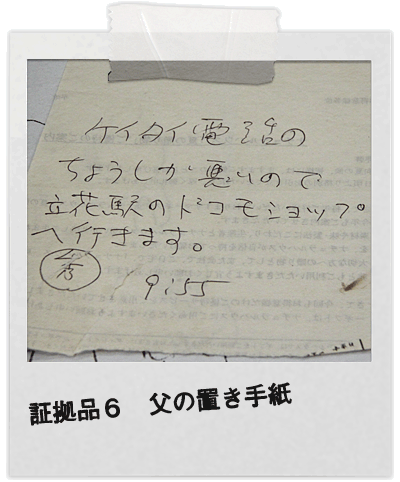 ケイタイ電話の
ちょうしが悪いので
立花駅のドコモショップ
へ行きます。
9:55
証拠品6 父の置き手紙